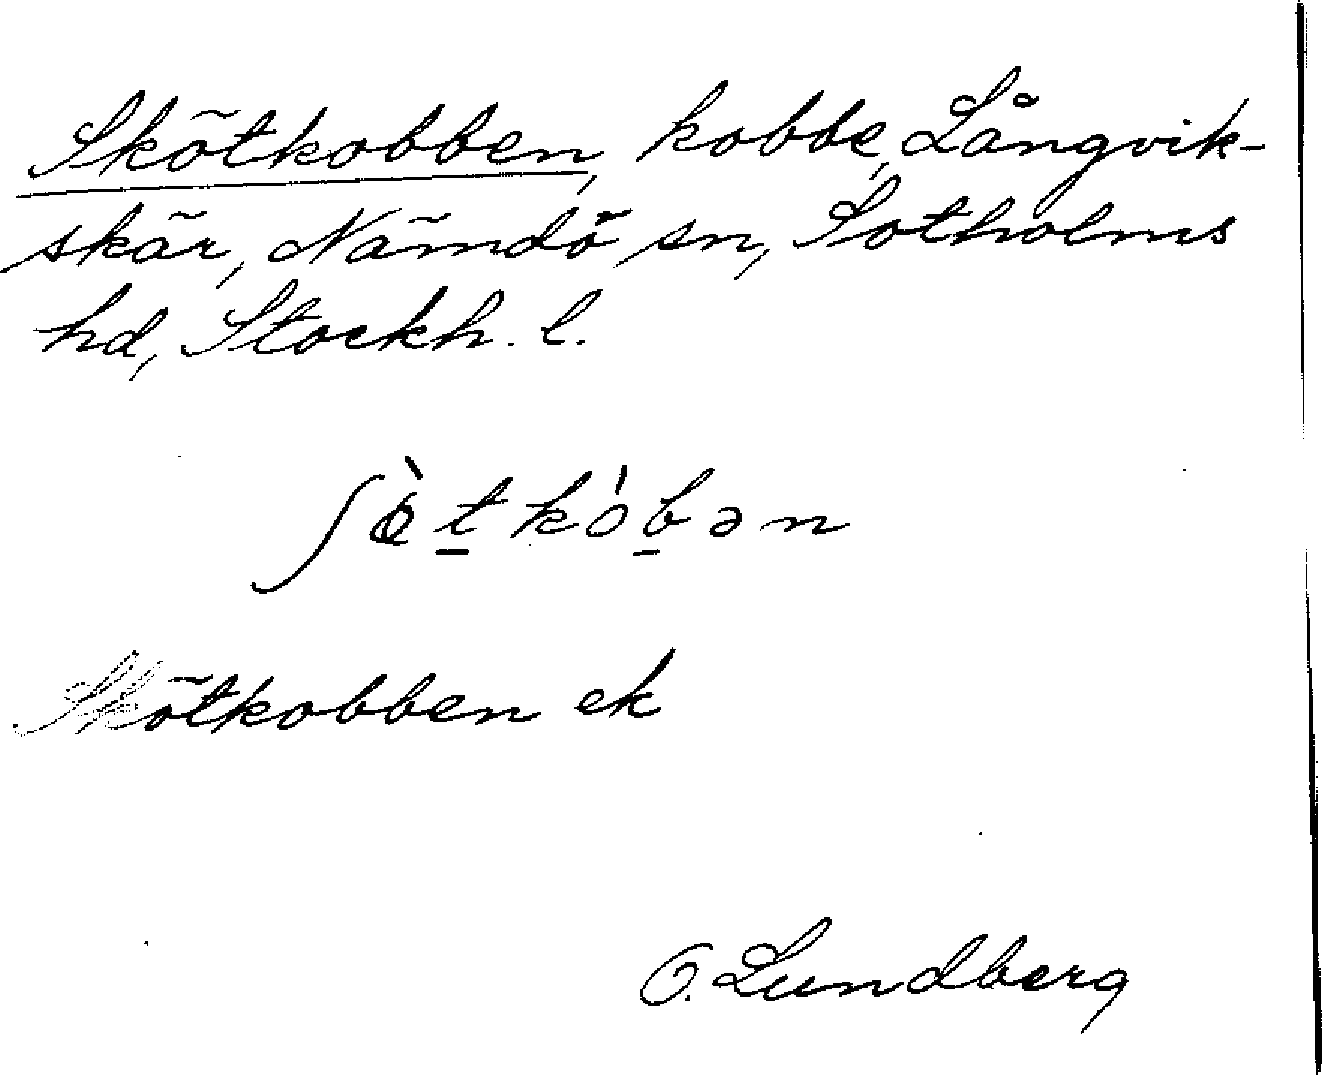 Skötkobben, kobbe, Långvik-
skär, Nämdö sn, Sotholms
hd, Stockh. l.
Skötkobben ek
O. Lundberg